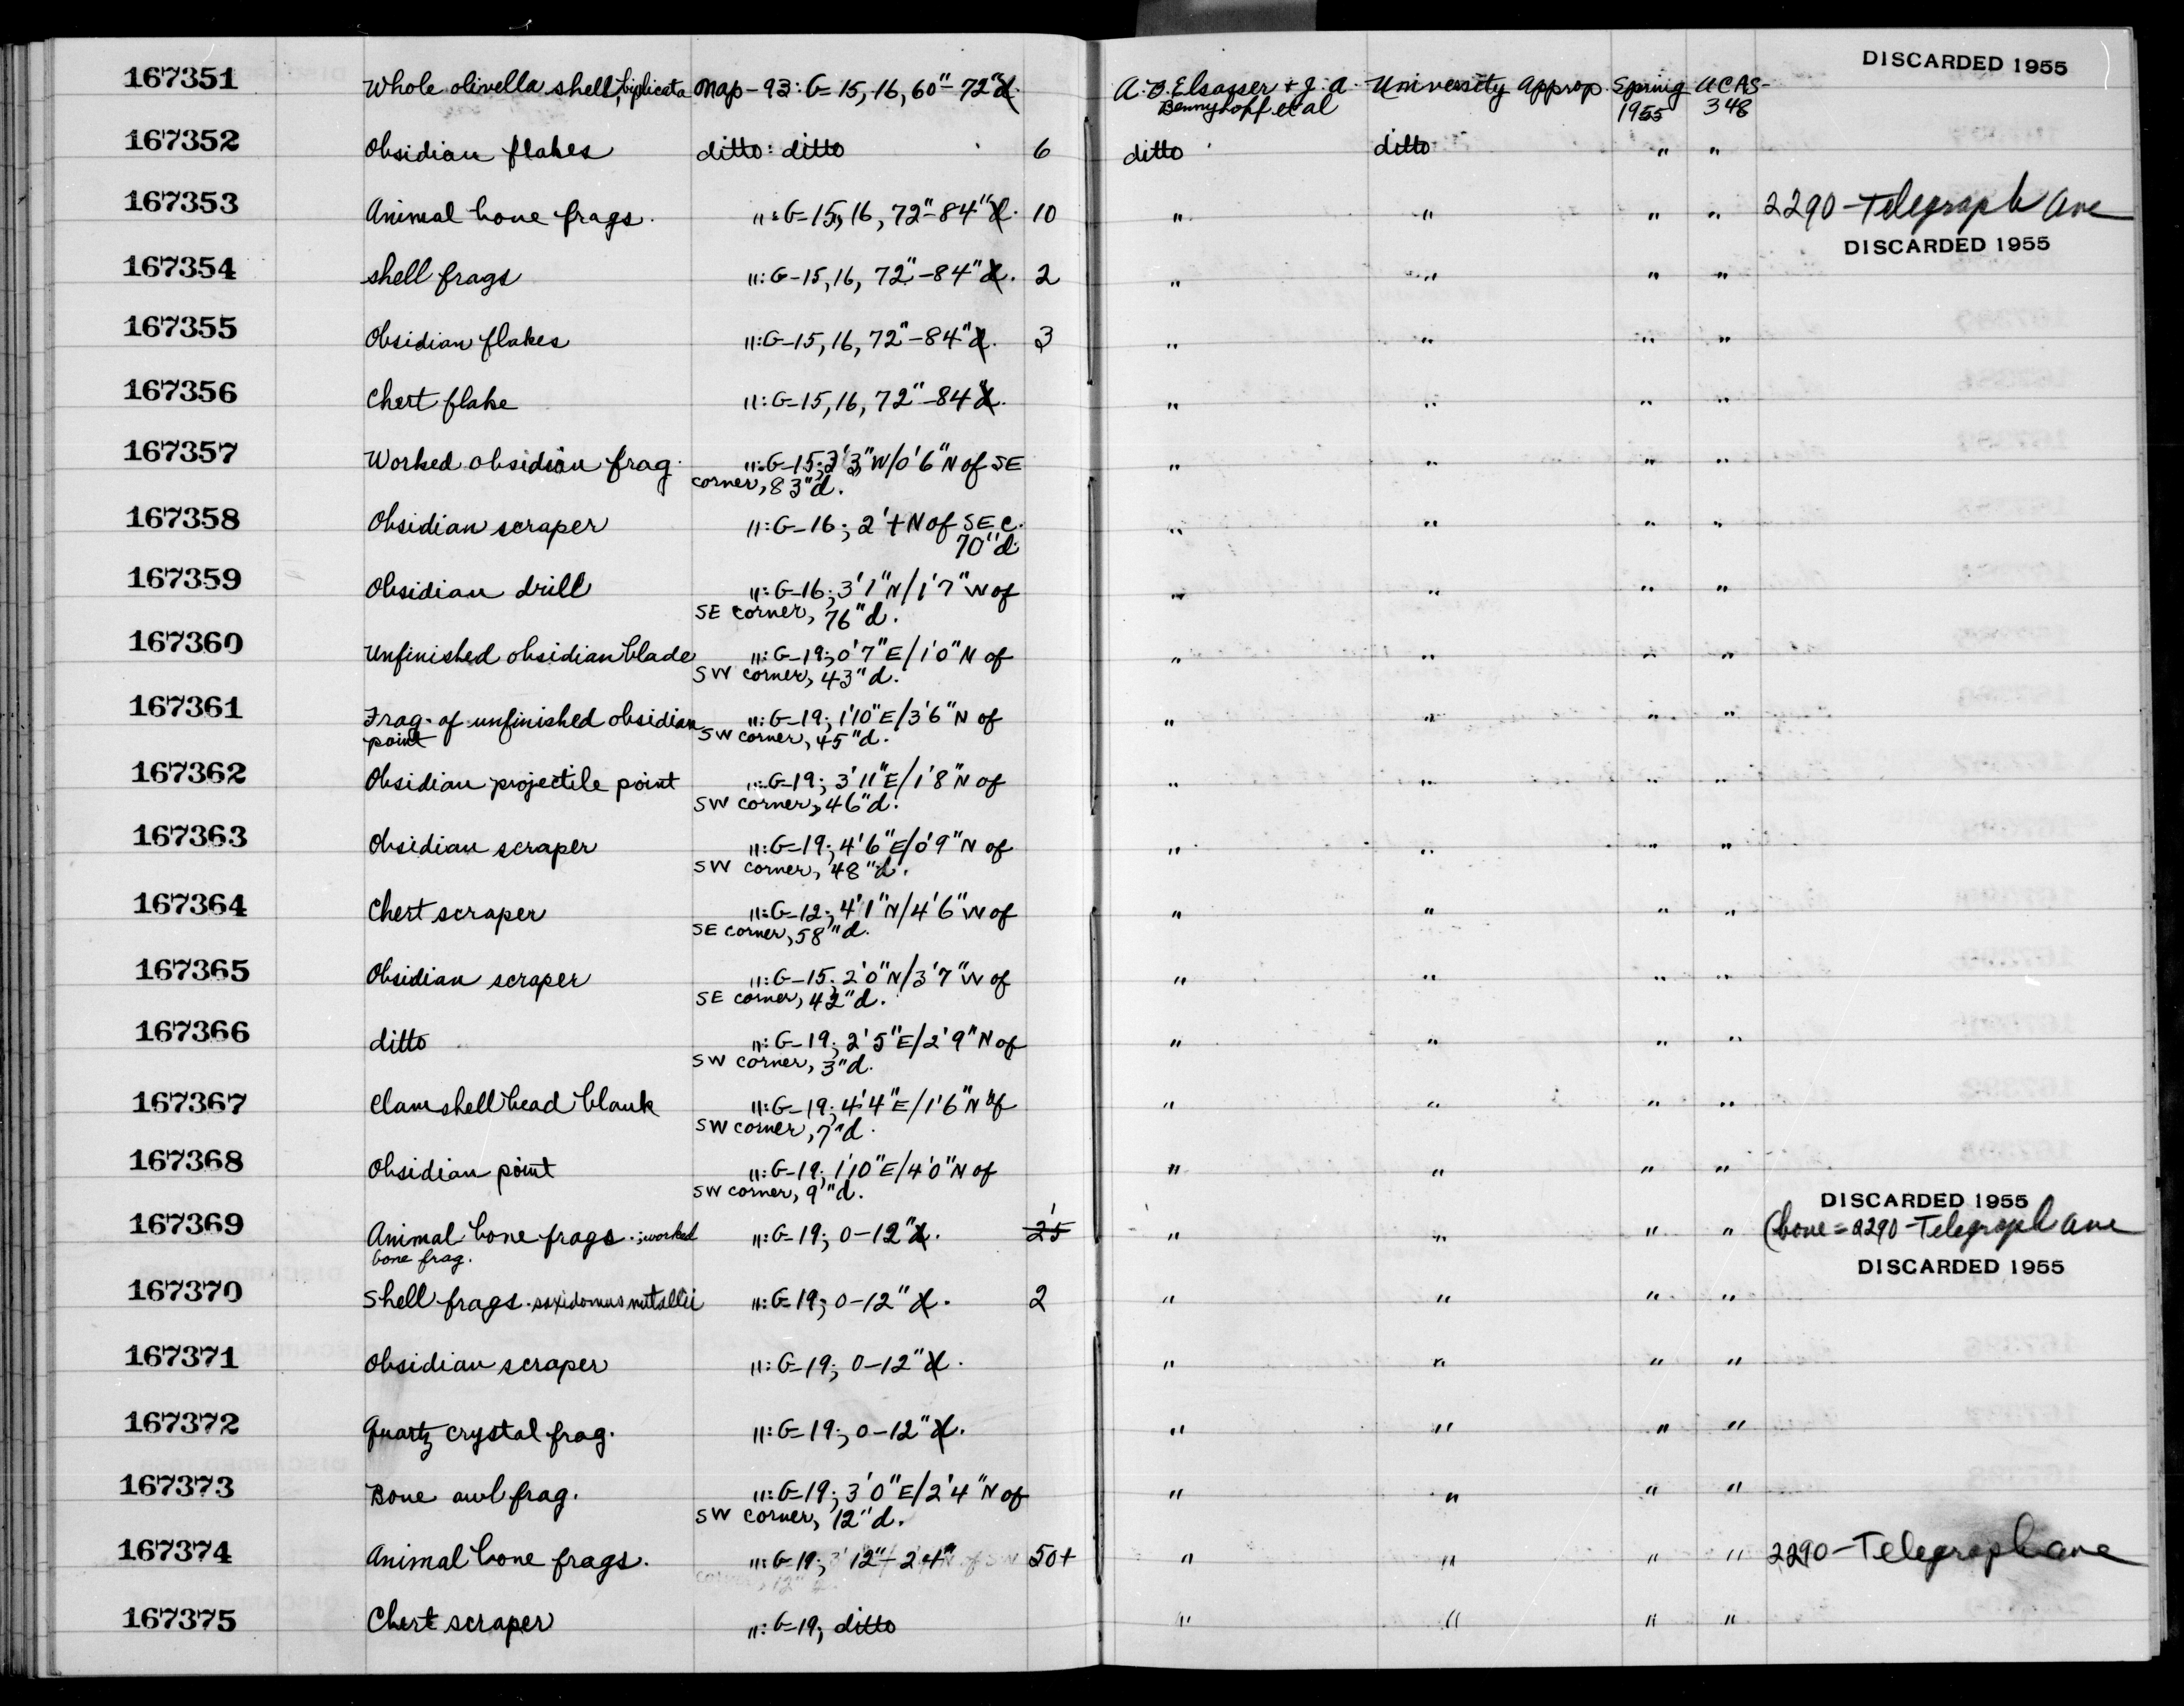 DISCARDED 1955
167351 Whole olivella shell, biplicata Map-93: G-15,16, 60"-72" d. A.B. Elsasser + J.A. University Approp. Spring UCAS-
Bennyhoff et al 1955 348
167352 Obsidian flakes ditto: ditto 6 ditto ditto " "
167353 Animal bone frags. ": G-15, 16, 72"-84" d. 10 " " " " 2290-Telegraph Ave
DISCARDED 1955
167354 shell frags ": G-15,16, 72"-84" d. 2 " " " "
167355 Obsidian flakes ": G-15,16, 72"-84" d. 3 " " " "
167356 Chert flake ": G-15,16, 72"-84" d. " " " "
167357 Worked obsidian frag. ": G-15; 3'3" W/0'6" N of SE " " " "
corner, 83" d.
167358 Obsidian scraper ": G-16; 2'+ N of SE C. " " " "
70" d.
167359 Obsidian drill ": G-16; 3'1" N/1'7" W of " " " "
SE corner, 76" d.
167360 Unfinished obsidian blade ": G-19; 0'7" E/1'0" N of " " " "
SW corner, 43" d.
167361 Frag. of unfinished obsidian ": G-19; 1'10" E/3'6" N of " " " "
point SW corner, 45" d.
167362 Obsidian projectile point ": G-19; 3'11" E/1'8" N of " " " "
SW corner, 46" d.
167363 Obsidian scraper ": G-19; 4'6" E/0'9" N of " " " "
SW corner, 48" d.
167364 Chert scraper ": G-12; 4'1" N/4'6" W of " " " "
SE corner, 58" d.
167365 Obsidian scraper ": G-15; 2'0" N/3'7" W of " " " "
SE corner, 42" d.
167366 ditto ": G-19; 2'5" E/2'9" N of " " " "
SW corner, 3" d.
167367 Clam shell bead blank ": G-19; 4'4" E/1'6" N of " " " "
SW corner, 7" d.
167368 Obsidian point ": G-19; 1'10" E/4'0" N of " " " "
SW corner, 9" d.
DISCARDED 1955
167369 Animal bone frags.; worked ": G-19; 0-12" d. 25 1 " " " " (bone = 2290-Telegraph Ave
bone frag.
DISCARDED 1955
167370 Shell frags. saxidomus nutallii ": G-19; 0-12" d. 2 " " " "
167371 Obsidian scraper ": G-19; 0-12" d. " " " "
167372 Quartz crystal frag. ": G-19; 0-12" d. " " " "
167373 Bone awl frag. ": G-19; 3'0" E/2'4" N of " " " "
SW corner, 12" d.
167374 Animal bone frags. ": G-19; 12"-24" 50+ " " " " 2290-Telegraph ave
167375 Chert scraper ": G-19; ditto " " " "